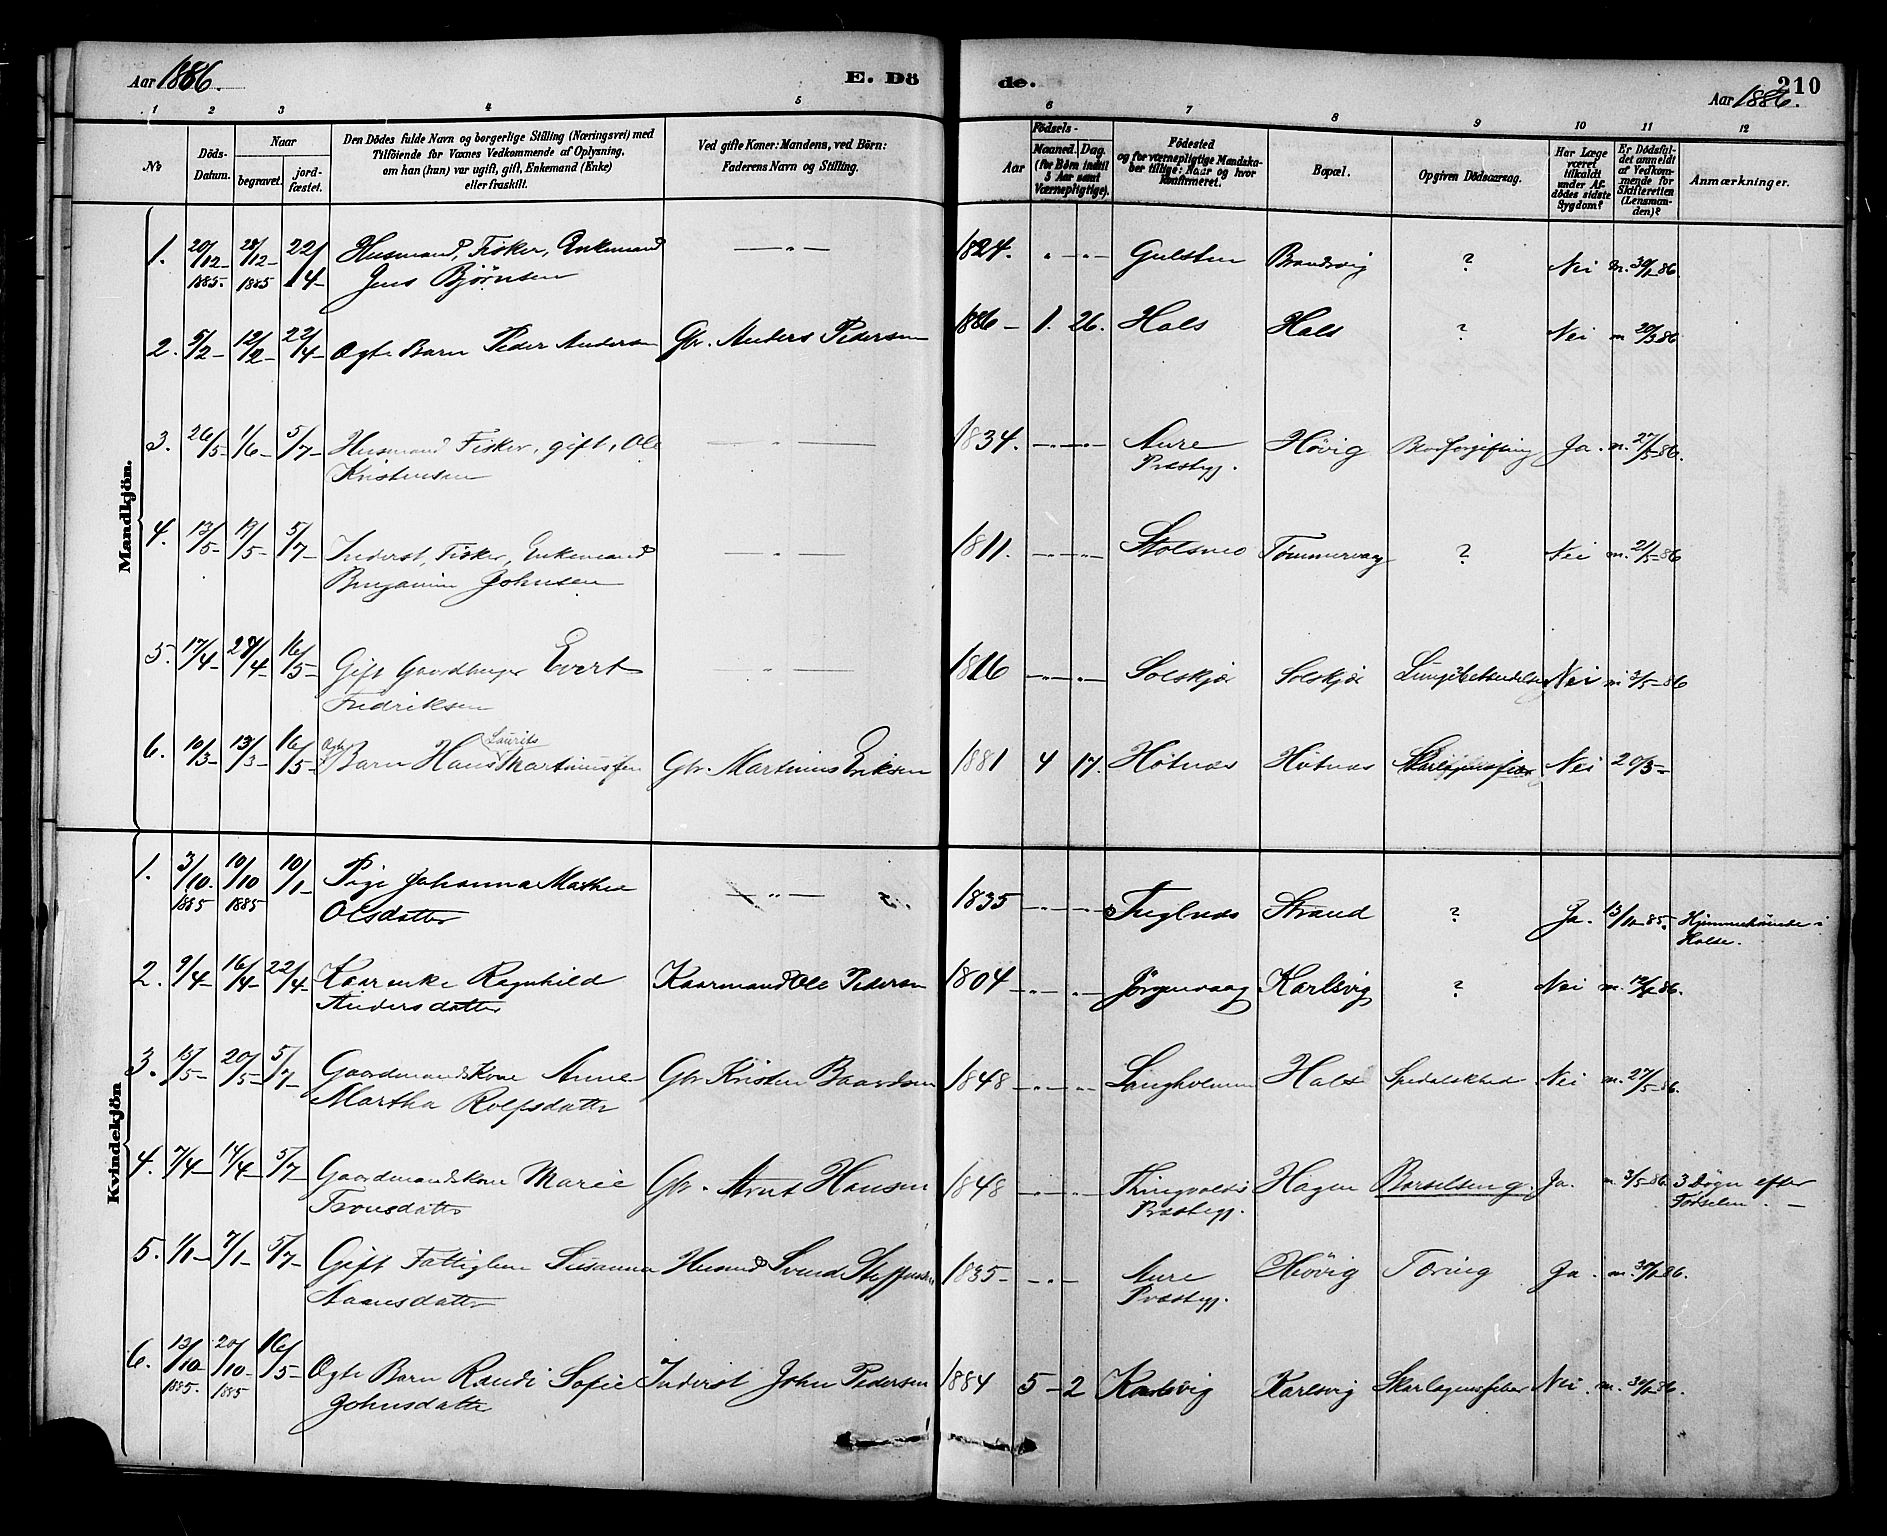 Aar 1886.
E. Dö
de.
210
Aar 1886.
1 2 3 4 5
6 7 8 9 10 11 12
№
Döds-Datum.
Naar
begravet.
jord-fæstet.
Den Dödes fulde Navn og borgerlige Stilling (Næringsvei) med
Tilföiende for Voxnes Vedkommende af Oplysning,
om han (hun) var ugift, gift, Enkemand (Enke)
eller fraskilt.
Ved gifte Koner: Mandens, ved Börn:
Faderens Navn og Stilling.
Födsels-
Aar
Maaned. Dag.
(for Börn indtil
5 Aar samt
Værnepligtige).
Födested
og for værnepligtige Mandska-
ber tillige: Naar og hvor
Konfirmeret.
Bopæl.
Opgiven Dödsaarsag.
Har Læge
været
tilkaldt
under Af-
dödes sidste
Sygdom?
Er Dödsfal-
det anmeldt
af Vedkom-
mende for
Skifteretten
(Lensman-
den)?
Anmærkninger.
Mandkjön.
1. 20/12 1885. 28/12 1885 22/4 Husmand, Fisker, Enkemand — „ — 1824. „ — „ — Gulsten Brandsvig ? Nei m. 30/1 86.
Jens Bjørnsen
2. 5/2 12/2 22/4 Ægte Barn Peder Andersen Gbr. Anders Pedersen 1886 1. 26. Hals Hals ? Nei m 20/3 86
3. 26/5 1/6 5/7 Husmand Fisker, gift, Ole — 1834. — „ — Aure Høvig Blodforgiftning Ja. m. 27/5 86.
Kristensen Præstegj.
4. 13/5 19/5 5/7 Inderst, Fisker, Enkemand — „ — 1811. — „ — Stolsnes Tømmervaag ? Nei m. 21/5 86
Benjamin Johnsen
5. 17/4 28/4 16/5 Gift Gaardbruger Evert — „ — 1816 — „ — Solskjæ Solskjæ Lungebetændelse Nei m 3/5 86
Fredriksen
6. 10/3 13/3 16/5 Ægte Barn Hans Laurits Martinussen Gbr. Martinus Eriksen 1881 4 17. Høtnæs Høtnæs Skarlagensfeber Nei 20/3
Kvindekjön
1. 3/10 1885 10/10 1885 10/1 Pige Johanna Marthe — „ — 1835 — „ — Strand ? Ja. 13/10 85. Hjemmehørende i
Olsdatter Halse.
2. 9/4 16/4 22/4 Kaarenke Ragnhild Kaarmand Ole Pedersen 1804 — „ — Jörgenvaag Karlsvig ? Nei m. 86.
Andersdatter
3. 15/5 20/5 5/7 Gaardmandskone Anne Gbr Kristen Baardsen 1848 — „ — Langholmen Hals Spedalskhed Nei m. 27/5 86.
Martha Rolfsdatter
4. 7/4 14/4 5/7 Gaardmandskone Marie Gbr. Arnt Hansen 1848 — „ — Thingvolds Hagen Barselseng. Ja. m. 3/5 86. 3 Døgn efter
Tronsdatter Præstegj. Fødselen.
5. 1/1 7/1 5/7 Gift Fattiglem Susanna Husmd Svend Steffensen 1835 — „ — Aure Høvig Tæring Ja. m. 30/1 86.
Præstegj.
6. 13/10 1885. 20/10 1885 16/5 Ægte Barn Randi Sofie Inderst John Pedersen 1884 5 2 Karlsvig Karlsvig Skarlagensfeber Nei. m. 30/1 86.
Johnsdatter